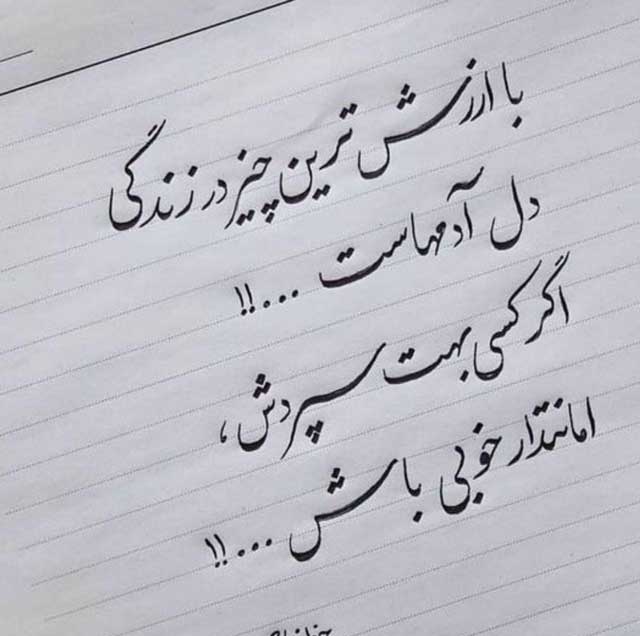 با ارزش ترین چیز در زندگی
دل آدمهاست ...!!
اگر کسی بهت سپردش،
امانتدار خوبی باش ...!!